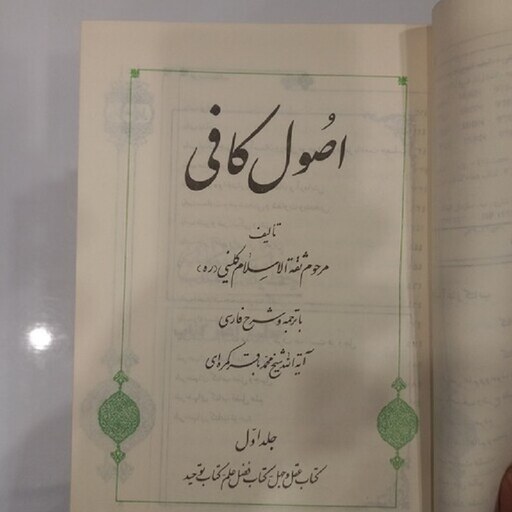 اصُول کافی
تألیف
مرحوم ثقة الاسلام کلینی (ره)
با ترجمه و شرح فارسی
آیة الله شیخ محمد باقر کمره‌ای
جلد اوّل
کتاب عقل و جهل - کتاب فضل علم - کتاب توحید